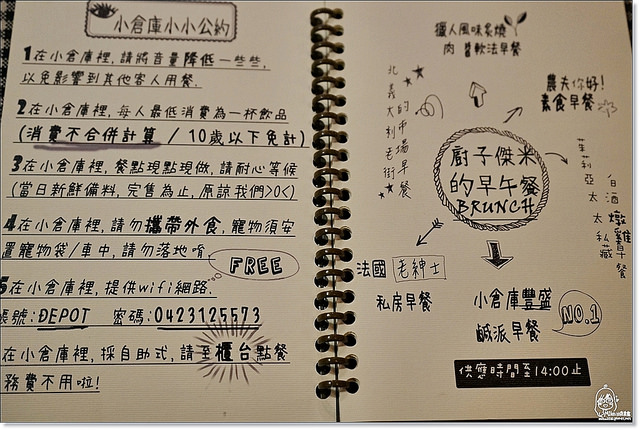 小倉庫小小公約
1在小倉庫裡,請將音量降低一些些,
以免影響到其他客人用餐.
2在小倉庫裡,每人最低消費為一杯飲品
(消費不合併計算 / 10歲以下免計)
3在小倉庫裡,餐點現點現做,請耐心等候
(當日新鮮備料,完售為止,原諒我們>0<)
4在小倉庫裡,請勿攜帶外食,寵物須安
置寵物袋/車中,請勿落地唷
FREE
5在小倉庫裡,提供wifi網路.
帳號:DEPOT 密碼:0423125573
在小倉庫裡,採自助式,請至櫃台點餐
務費不用啦!
獵人風味炙燒
肉醬軟法早餐
農夫你好!
素食早餐
北義大利老街
的市場早餐
廚子傑米
的早午餐
BRUNCH
茱莉亞太太私藏
白酒燉雞早餐
法國老紳士
私房早餐
小倉庫豐盛
鹹派早餐
NO.1
供應時間至14:00止